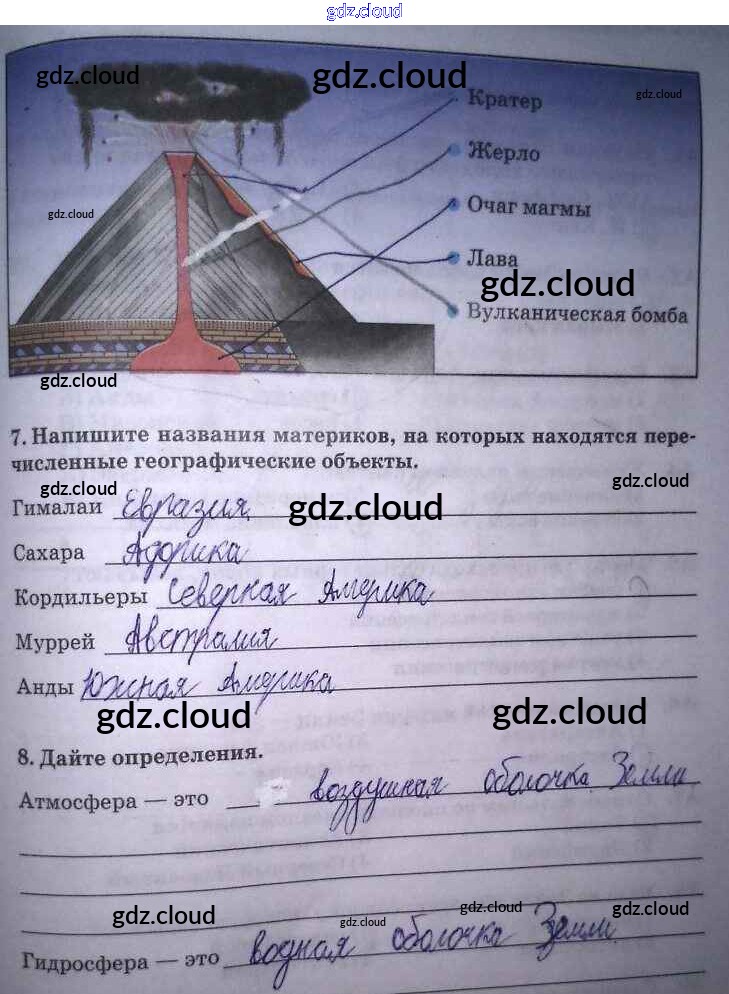 gdz.cloud
gdz.cloud
gdz.cloud
gdz.cloud
Кратер
Жерло
gdz.cloud
Очаг магмы
Лава
gdz.cloud
Вулканическая бомба
gdz.cloud
7. Напишите названия материков, на которых находятся пере-
численные географические объекты.
gdz.cloud
gdz.cloud
gdz.cloud
Гималаи Евразия
Сахара Африка
Кордильеры Северная Америка
Муррей Австралия
Анды Южная Америка
gdz.cloud
gdz.cloud
8. Дайте определения.
Атмосфера — это воздушная оболочка Земли
gdz.cloud
gdz.cloud
gdz.cloud
gdz.cloud
Гидросфера — это водная оболочка Земли